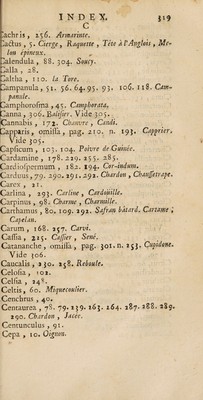 INDEX. 319
C
Cachris, 256. Armarinte.
Cactus, 5. Cierge, Raquette, Tête à l'Anglois, Me-
lon épineux.
Calendula, 88. 304. Soucy.
Calla, 28.
Caltha, 110. la Tore.
Campanula, 51. 56. 64. 95. 93. 106. 118. Cam-
panule.
Camphorosma, 45. Camphorata.
Canna, 306. Balisier. Vide 305.
Cannabis, 172. Chanvre, Candi.
Capparis, omissa, pag. 210. n. 193. Caprier.
Vide 305.
Capsicum, 103. 104. Poivre de Guinée.
Cardamine, 178. 229. 255. 285.
Cardiospermum, 182. 194. Cor-indum.
Carduus, 79. 290. 291. 292. Chardon, Chaussetrape.
Carex, 21.
Carlina, 293. Carline, Cardouille.
Carpinus, 98. Charme, Charmille.
Carthamus, 80. 109. 292. Safran bâtard. Cartame,
Capelan.
Carum, 168. 257. Carvi.
Cassia, 215. Cassier, Sené.
Catananche, omissa, pag. 301. n. 253. Cupidone.
Vide 306.
Caucalis, 230. 258. Reboule.
Celosia, 102.
Celsia, 248.
Celtis, 60. Miquecoulier.
Cenchrus, 40.
Centaurea, 78. 79. 239. 263. 264. 287. 288. 289.
290. Chardon, Jacée.
Centunculus, 91.
Cepa, 10. Oignon.